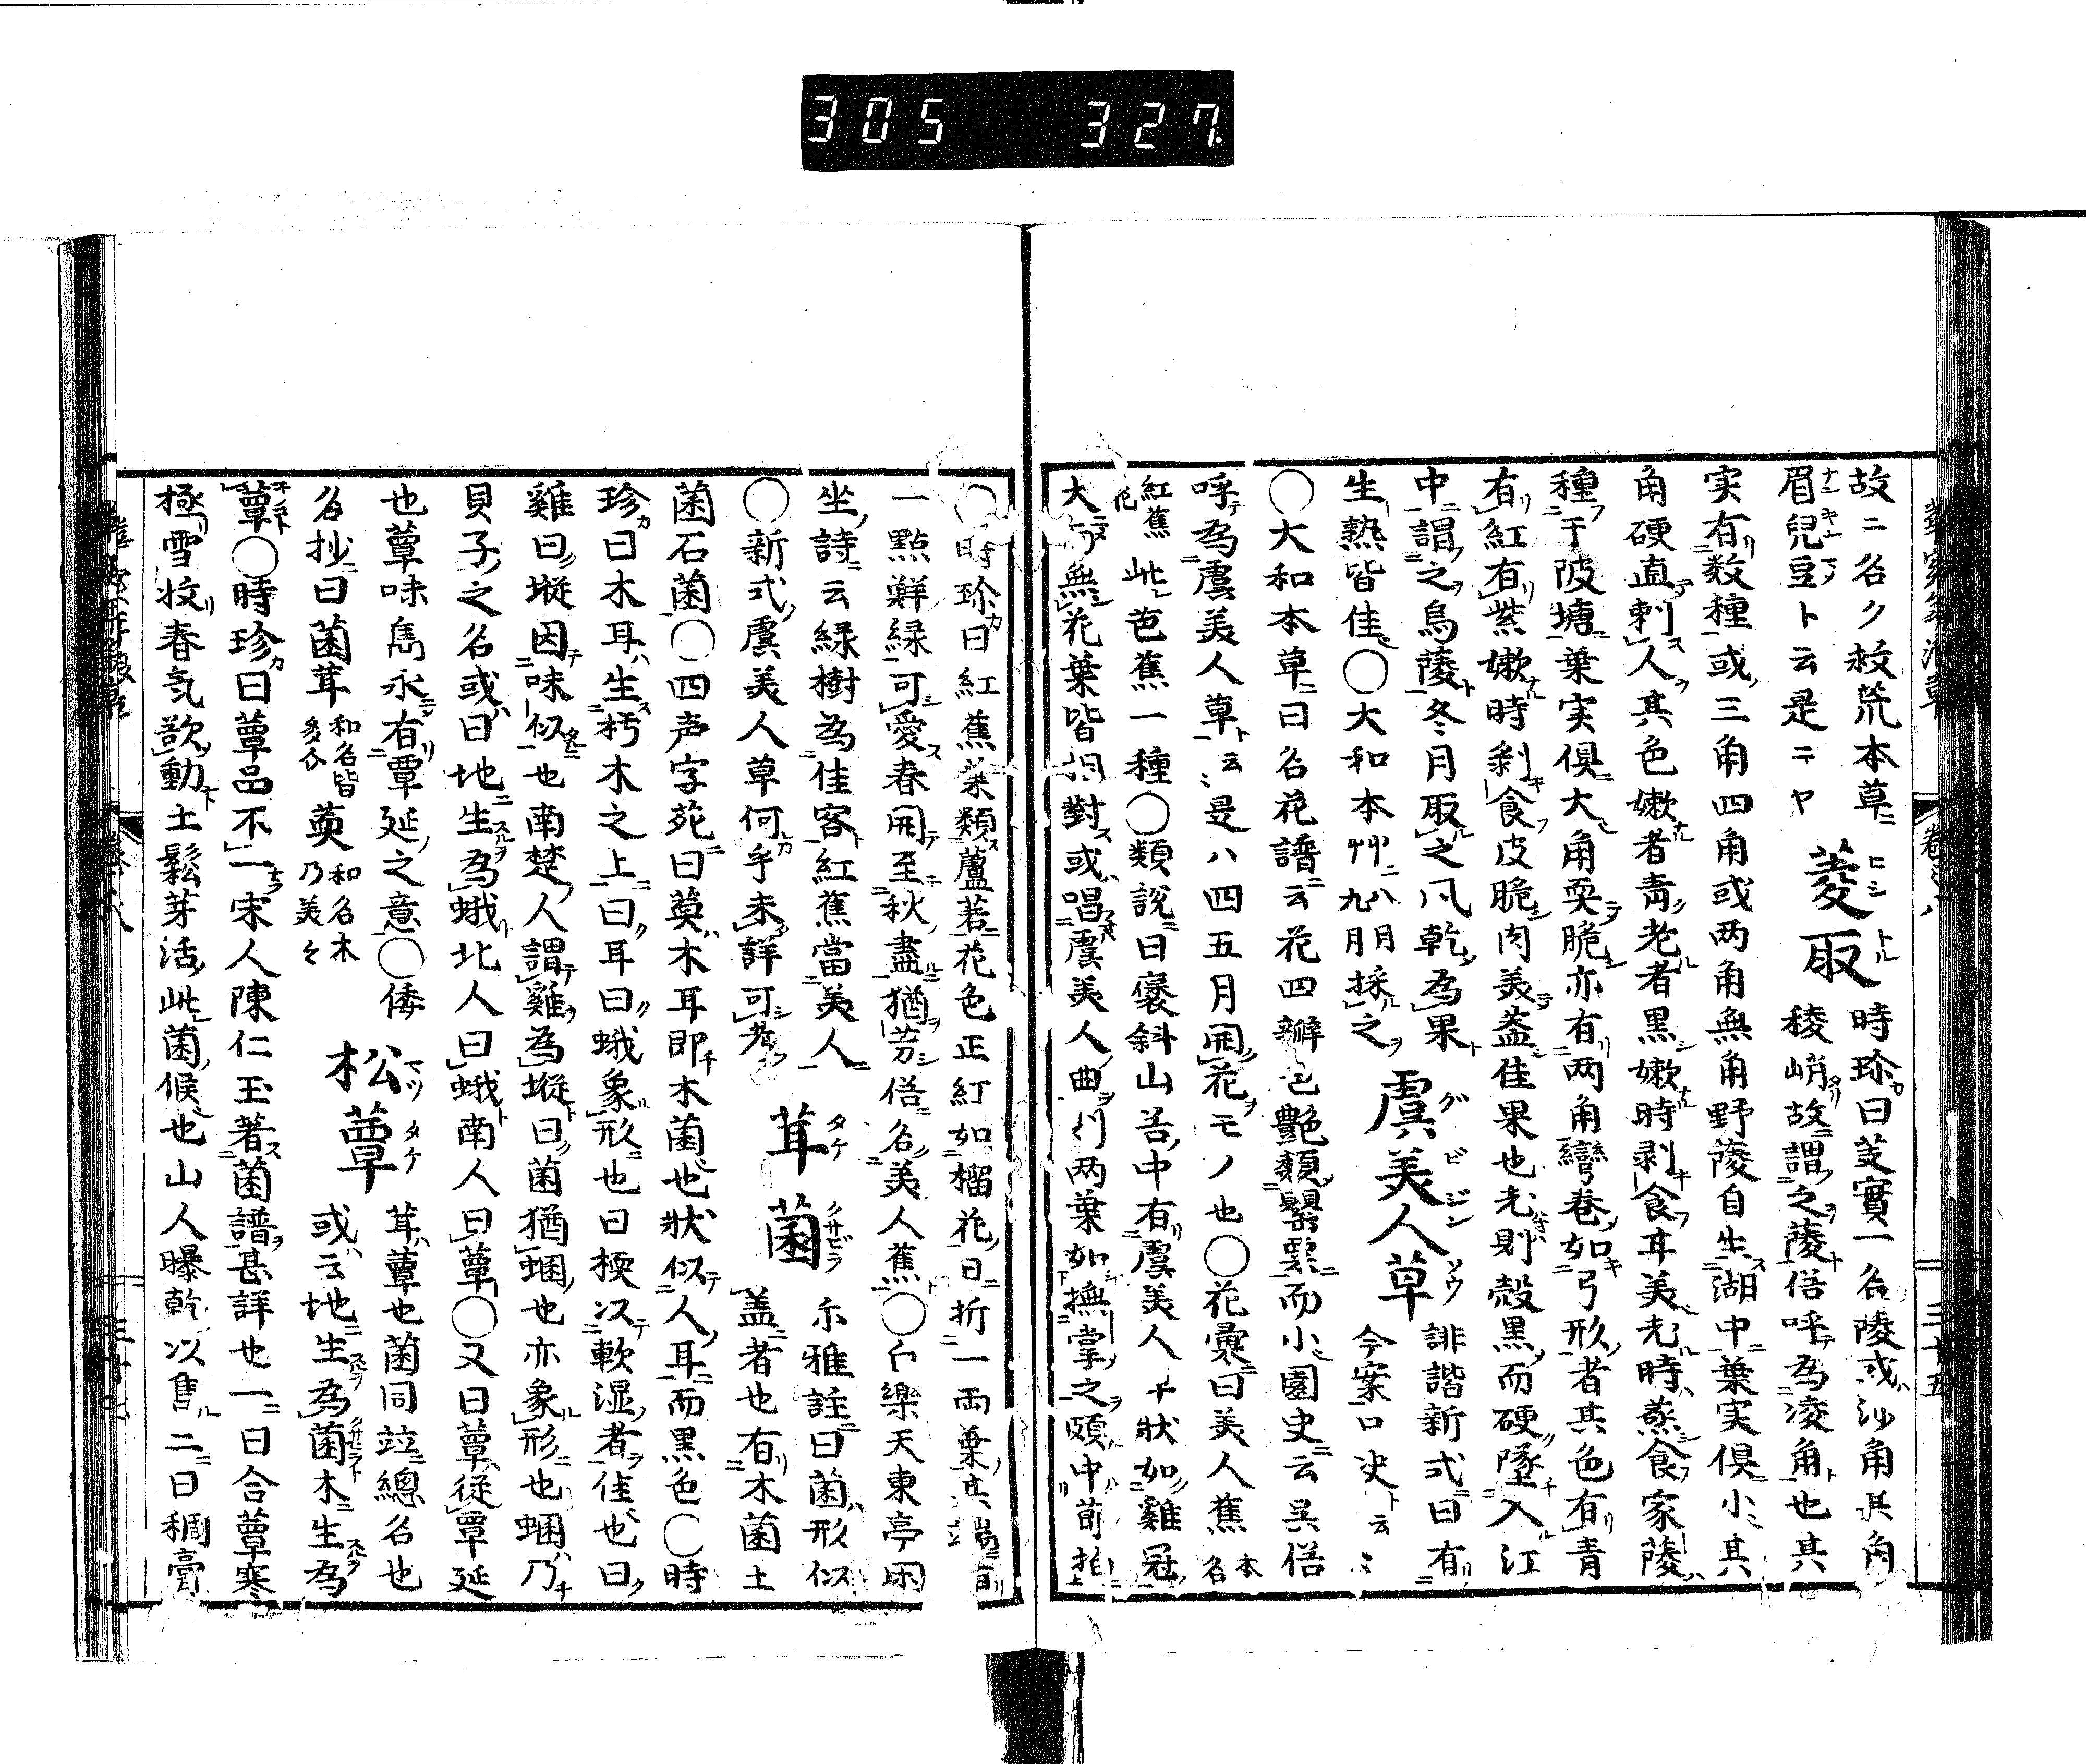 305 327
故ニ名ク救荒本草ニ 菱取 時珍曰芰實一名䔖或沙角其角
眉兒豆ト云是ニヤ 稜峭故謂之䔖俗呼為凌角也其
実有数種或三角四角或两角無角野䔖自生湖中葉実倶小其
角硬直刺人其色嫩者青老者黒嫩時剥食耳美老時蒸食家䔖
種于陂塘葉実倶大角耎脆亦有两角彎巻如弓形者其色有青
有紅有紫嫩時剥食皮脆肉美盖佳果也老則殼黒而硬墜入江
中謂之烏䔖冬月取之风乾為果 虞美人草 誹諧新式曰有
生熟皆佳○大和本艸ニ八九月採之 今案口决ト云〻
○大和本草ニ曰名花譜云花四瓣色艶類罌粟而小園史云吴俗
呼為虞美人草ト云〻是ハ四五月開花モノ也○花彙曰美人蕉 本名
紅蕉花 此芭蕉一種○類説曰褒斜山谷中有虞美人艸状如雞冠
大而無花葉皆相對或唱虞美人曲则两葉如撫掌之頗中節拍
○時珍曰紅蕉葉類蘆若花色正紅如榴花日折一两葉其端有
一點鮮緑可愛春開至秋盡猶芳俗名美人蕉○白樂天東亭闲
坐詩云緑樹為佳客紅蕉當美人
○新式虞美人草何乎未詳可考 茸 菌 尒雅註曰菌形似
盖者也有木菌土
菌石菌○四声字苑曰萸木耳即木菌也状似人耳而黒色○時
珍曰木耳生朽木之上曰耳曰蛾象形也曰檽以軟湿者佳也曰
雞曰㙡因味似也南楚人謂雞為㙡曰菌猶蜠也亦象形也蜠乃
貝子之名或曰地生為蛾北人曰蛾南人曰蕈○又曰蕈従覃延
也蕈味雋永有覃延之意○倭 松蕈 茸蕈也菌同竝總名也
名抄曰菌茸 和名皆多介 萸 和名木乃美々 或云地生為菌木生為
蕈○時珍曰蕈品不一宋人陳仁玉著菌譜甚詳也一曰合蕈寒
極雪收春氣欲動土鬆芽活此菌候也山人曝乾以售二曰稠膏